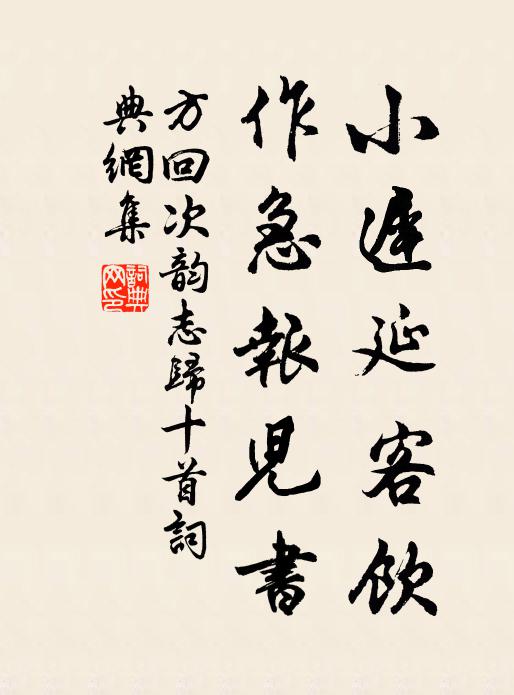 小遲延客飲
作急報児書
方回次韵志歸十首詞
典網集
詞典
网印